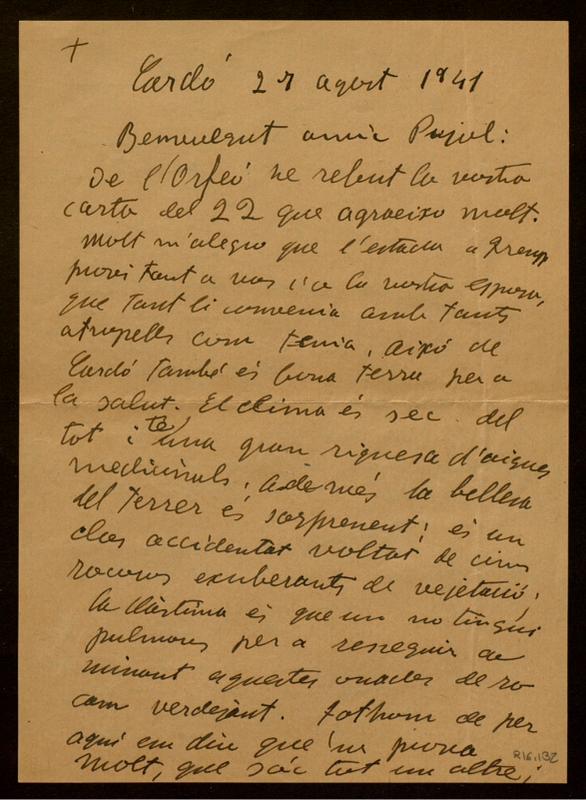 +
Cardó 27 agost 1941
Benvolgut amic Pujol:
De l'Orfeó he rebut la vostra
carta del 22 que agraeixo molt.
Molt m'alegro que l'estada a Premp
provi tant a vos i a la vostra esposa,
que tant li convenia amb tants
atropells com tenia. Aixó de
Cardó també és bona terra per a
la salut. El clima és sec del
tot i té una gran riquesa d'aigues
medicinals; ademés la bellesa
del terrer és sorprenent; és un
clos accidentat voltat de cims
rocosos exuberants de vejetació.
La llàstima és que un no tingui
pulmons per a resseguir ca
minant aquestes onades de ro
cam verdejant. Tothom de per
aquí em diu que m'ha provat
molt, que sóc tot un altre;
R16.132